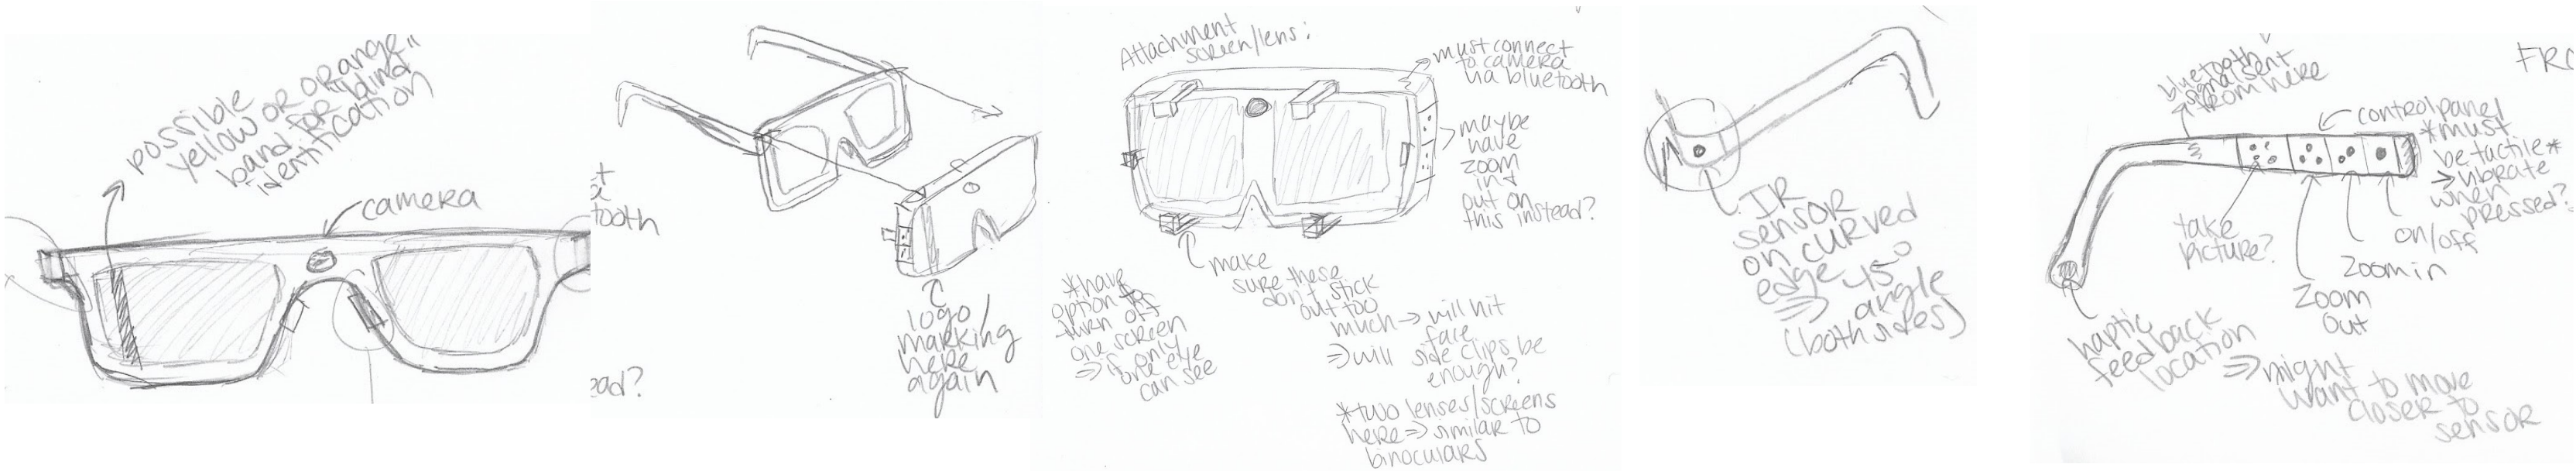 possible
yellow or orange
band for blind
identification
camera
t
tooth
ead?
logo/
marking
here
again
Attachment
screen/lens:
must connect
to camera
via bluetooth
maybe
have
zoom
in +
out on
this instead?
make
sure these
don't stick
out too
much → will hit
face
⇒ will side clips be
enough?
*have
option to
turn off
one screen
⇒ if only
one eye
can see
*two lenses/screens
here ⇒ similar to
binoculars
IR
sensor
on curved
edge 45°
⇒ angle
(both sides)
FRO
bluetooth
signal sent
from here
control panel
*must
be tactile*
⇒ vibrate
when
pressed?
take
picture?
on/off
zoom in
zoom
out
haptic
feedback
location
⇒ might
want to move
closer to
sensor